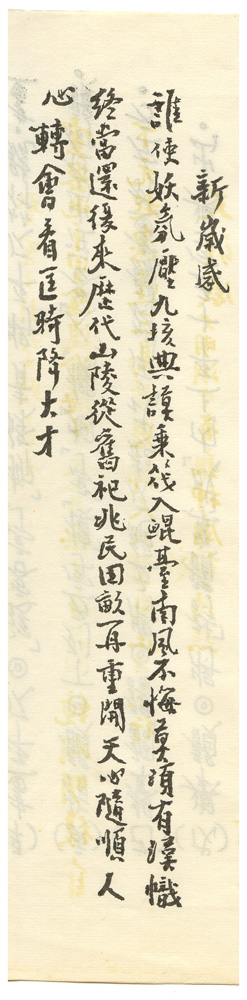 新歲感
誰使妖氛壓九垓典謨乘筏入鯤臺南風不悔莫須有漢幟
終當還復來歷代山陵從舊祀兆民田畝再重開天心隨順人
心轉會看匡時降大才